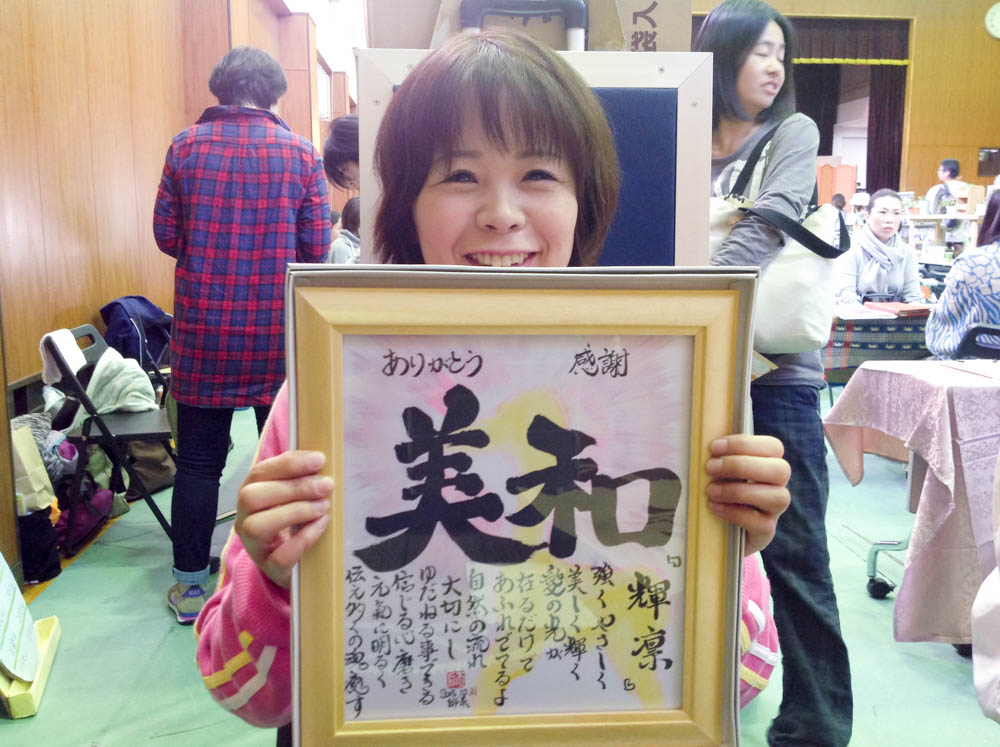 袋入
ありがとう 感謝
美和
『輝凛』
強くやさしく
美しく輝く
愛の光が
在るだけで
あふれでてるよ
自然の流れ
大切にし
ゆだねる事できる
信じる心磨き
元氣に明るく
伝え多くの魂癒す